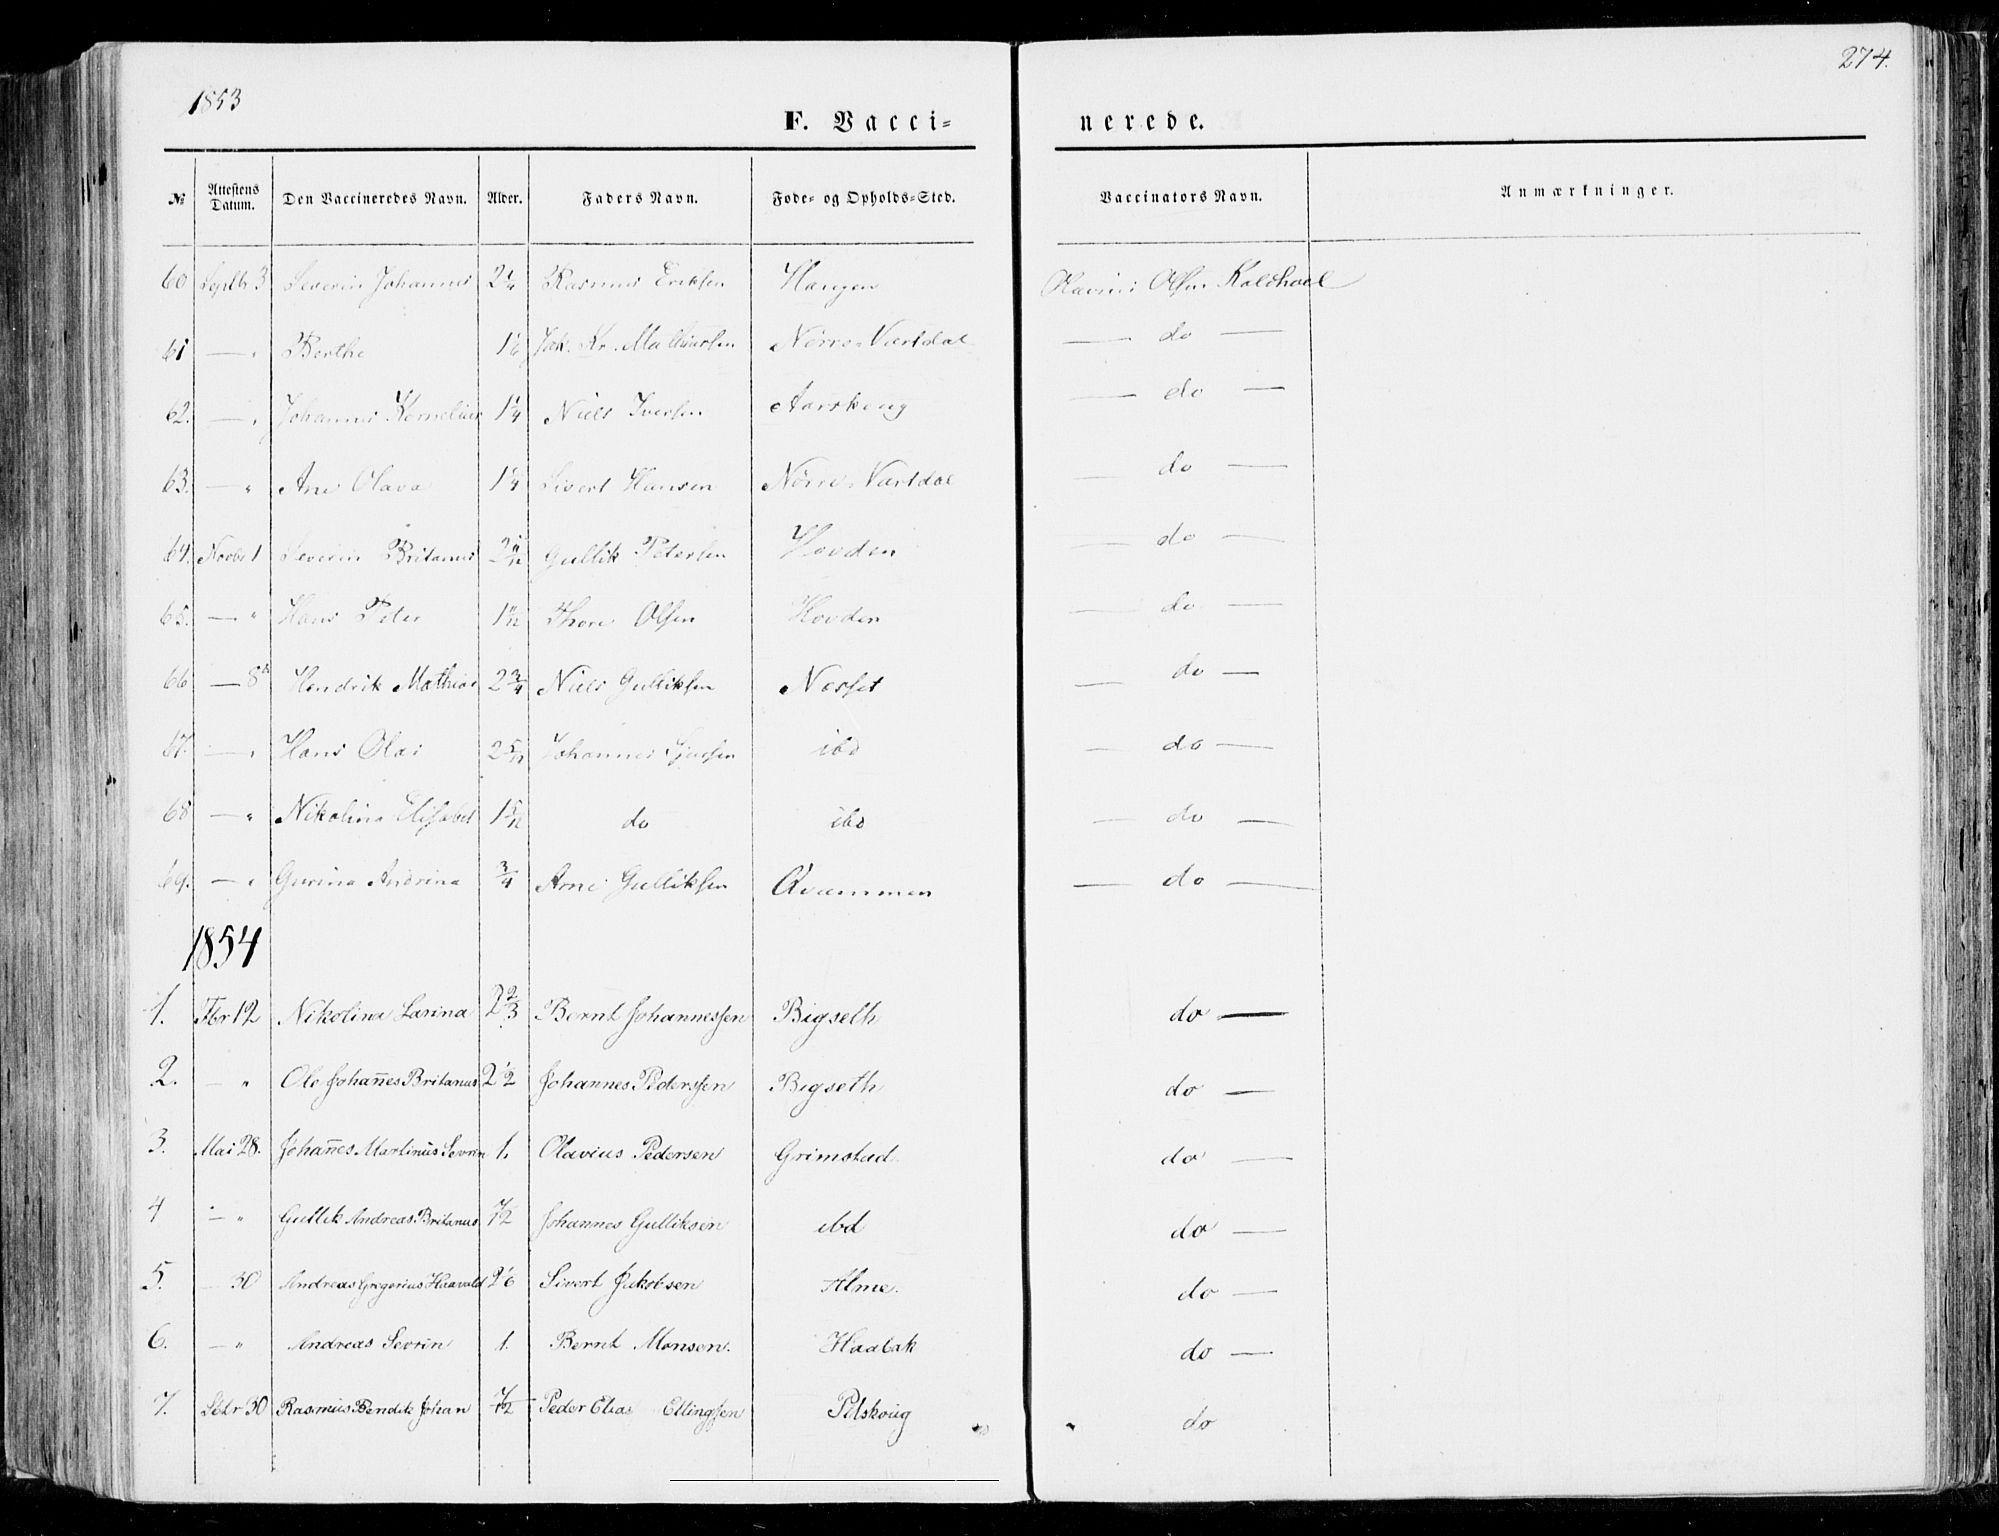 274.
1853
F. Vacci- nerede.
№ Attestens Datum. Den Vaccineredes Navn. Alder. Faders Navn. Føde- og Opholds-Sted. Vaccinators Navn. Anmærkninger.
60 Septbr 3 Severin Johannes 2 1/4 Rasmus Eriksen Haugen Olavius Olsen Koldhoel
61 — " Berthe 1 1/6 Jak. Kr. Nørre-Vartdal — do —
62. — " Johannes Kornelius 1 1/4 Niels Iversen Aarskoug — do —
63. — " Ane Olava 1 1/4 Sivert Hansen Nørre-Vartdal — do —
64. Novbr 1 Severin Britanus Gullik Petersen Hovden — do —
65. — " Hans Peter 1 11/12 Thore Olsen Hovden — do —
66 — 8 Hendrik Mathias 2 3/4 Niels Gulliksen Nesset — do —
67. — " Hans Olai 2 5/12 Johannes ibd — do —
68 — " Nikolina Elisabet 1 5/12 do ibd — do —
69. — " Gurina Andrina 3/4 Arne Gulliksen Qvammen — do —
1854
1. Fbr 12 Nikolina Larina 2 2/3 Bernt Johannessen Bigseth do —
2. — " Ole Johañes Britanus 2 1/2 Johannes Pederssen Bigseth do —
3. Mai 28. Johañes Martinus Sevrin 1. Olavius Pedersen Grimstad. do —
4 — " Gullik Andreas Britanus 7/12 Johannes Gulliksen ibd do —
5. — 30 Andreas Gregorius Haavald 2 1/6 Sivert Jakobsen Alme. do —
6. — " Andreas Sevrin 1. Bernt Monsen. Haabak do —
7. Sbtr 30 Rasmus Bendik Johan 7/12 Peder Elias Ellingssen Pilskoug do